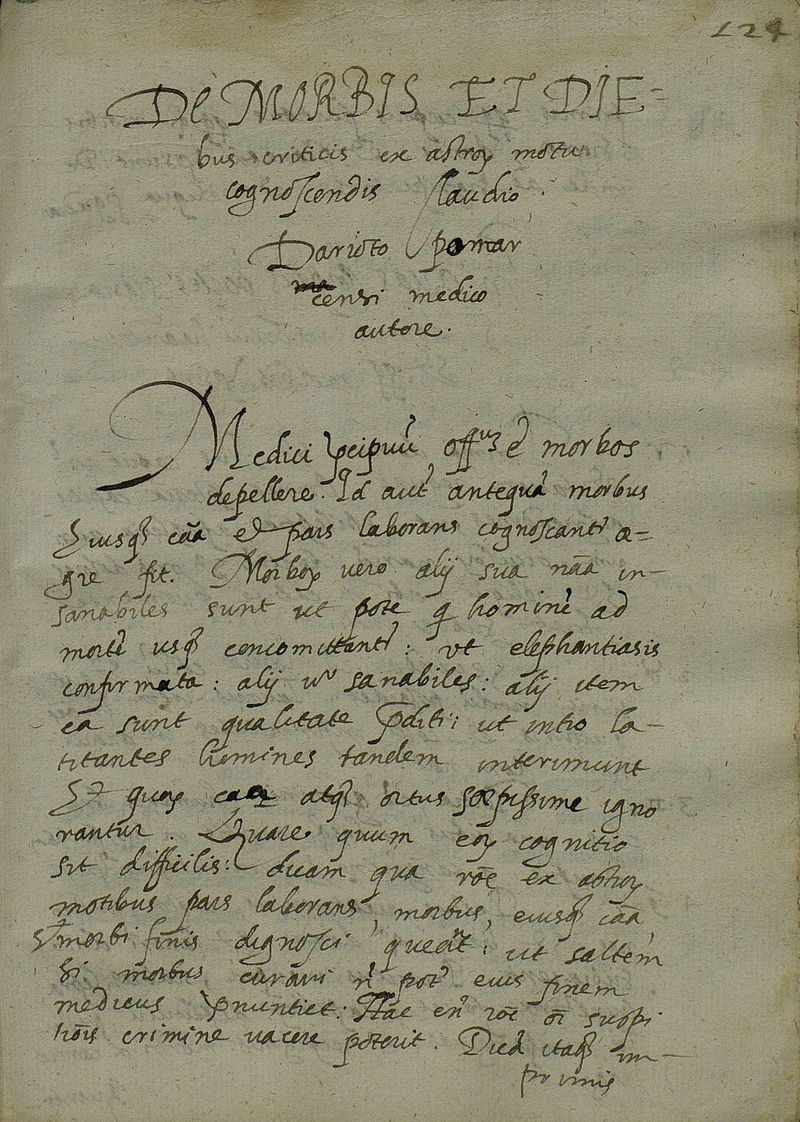 124
DE MORBIS ET DIE=
bus criticis ex astroꝝ motu
cognoscendis Claudio
Darioto pomar
censi medico
autore.
Medici p̄cipuū off^us ē morbos
depellere. Id aut̄ antequā morbus
Eiusqȝ cāa et pars laborans cognoscant^r æ=
gre fit. Morboꝝ vero alij sua nāa in-
sanabiles sunt ut pote q̄ hominē ad
mortē usqȝ concomittant^r: vt elephantiasis
confirmata: alij v^o sanabiles: alij item
ea sunt qualitate p̄diti: ut intro la-
titantes homines tandem interimunt
Et quoꝝ caa atqȝ ortus sæpissime igno
rantur. Quare quum eoꝝ cognitio
sit difficilis: dicam qua rōe ex astroꝝ
motibus pars laborans, morbus, eiusqȝ cāa,
et morbi finis dignosci queāt: ut saltem
si morbus curari n̄ pot̄ eius finem
medicus p̄nuntiet: Hac en̄ rōe oī suspi
tiōis crimine vacare poterit. Dicā itaqȝ im-
primis